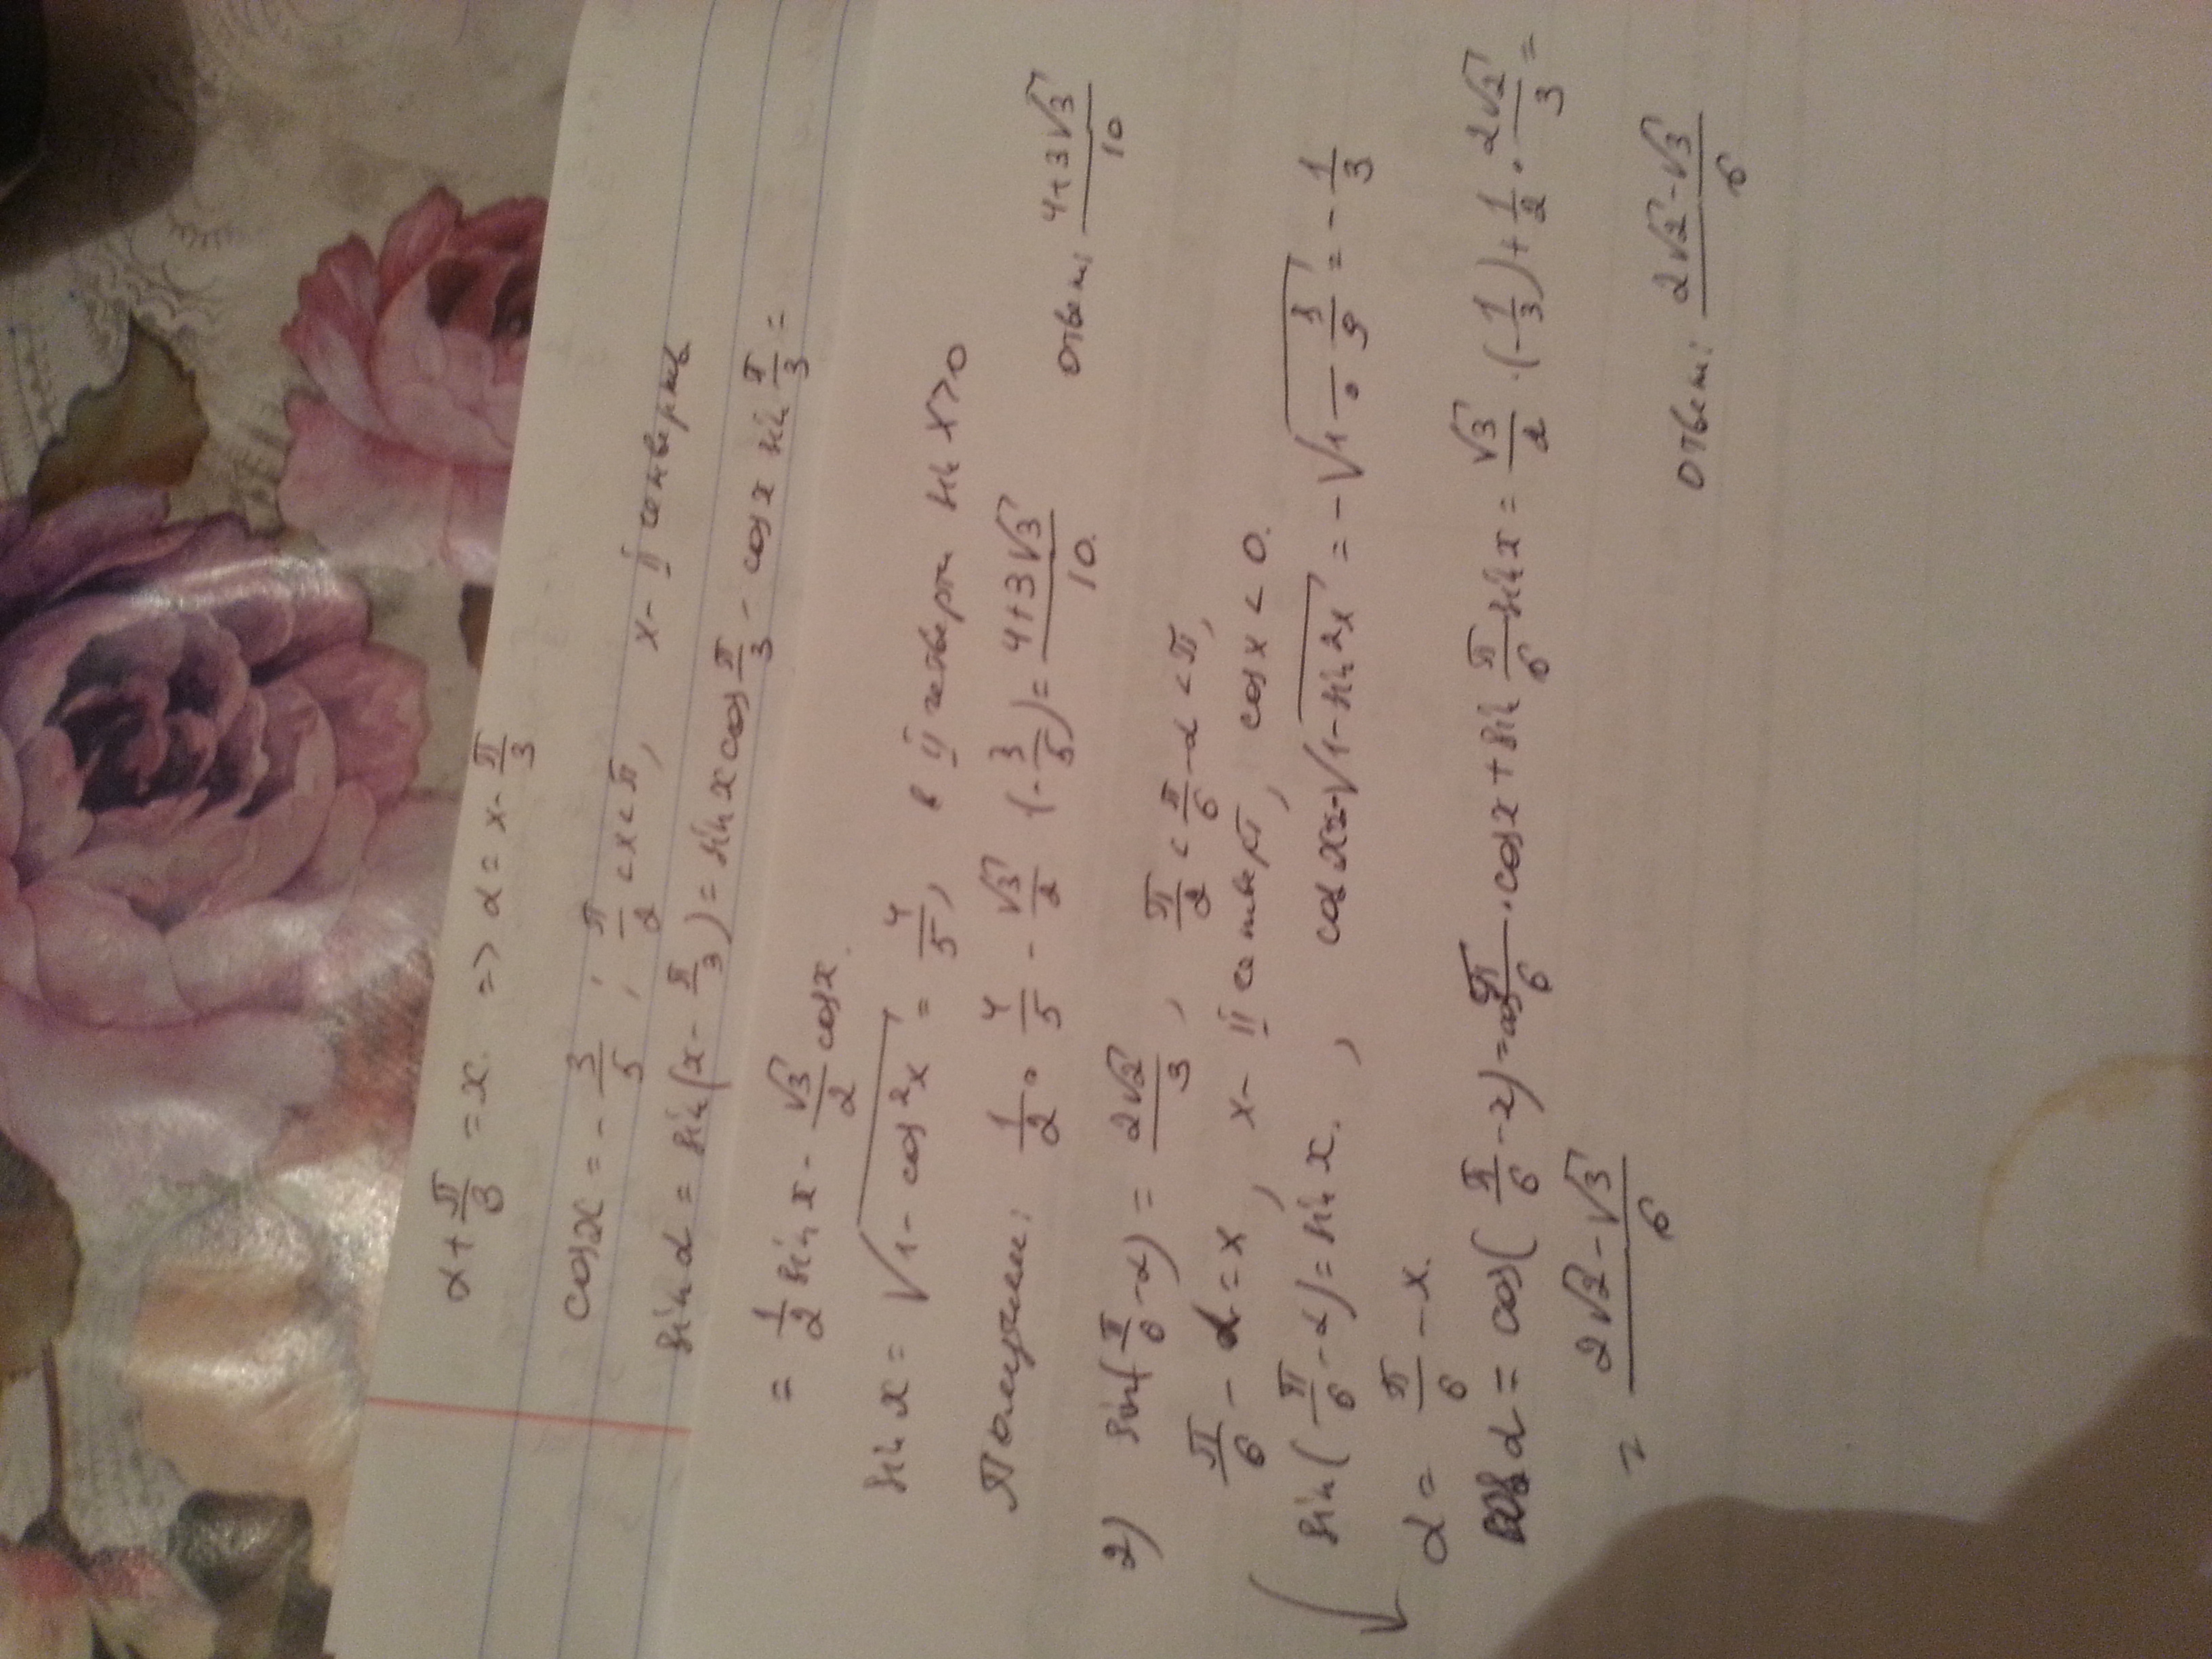 α + π/3 = x. => α = x - π/3
cos x = - 3/5 ; π/2 < x < π, x - II четверть
sin α = sin(x - π/3) = sin x cos π/3 - cos x sin π/3 =
= 1/2 sin x - √3/2 cos x.
sin x = √(1 - cos²x) = 4/5, в II четверти sin x > 0
Получаем: 1/2 · 4/5 - √3/2 (-3/5) = (4+3√3)/10.
ответ: (4+3√3)/10
2) sin(π/6 - α) = 2√2/3, π/2 < π/6 - α < π,
π/6 - α = x, x - II четверт, cos x < 0.
sin(π/6 - α) = sin x., cos x = -√(1 - sin²x) = -√(1 - /9) = - 1/3
α = π/6 - x.
cos α = cos(π/6 - x) = cos π/6 · cos x + sin π/6 sin x = √3/2 · (-1/3) + 1/2 · 2√2/3 =
= (2√2 - √3)/6
ответ: (2√2 - √3)/6